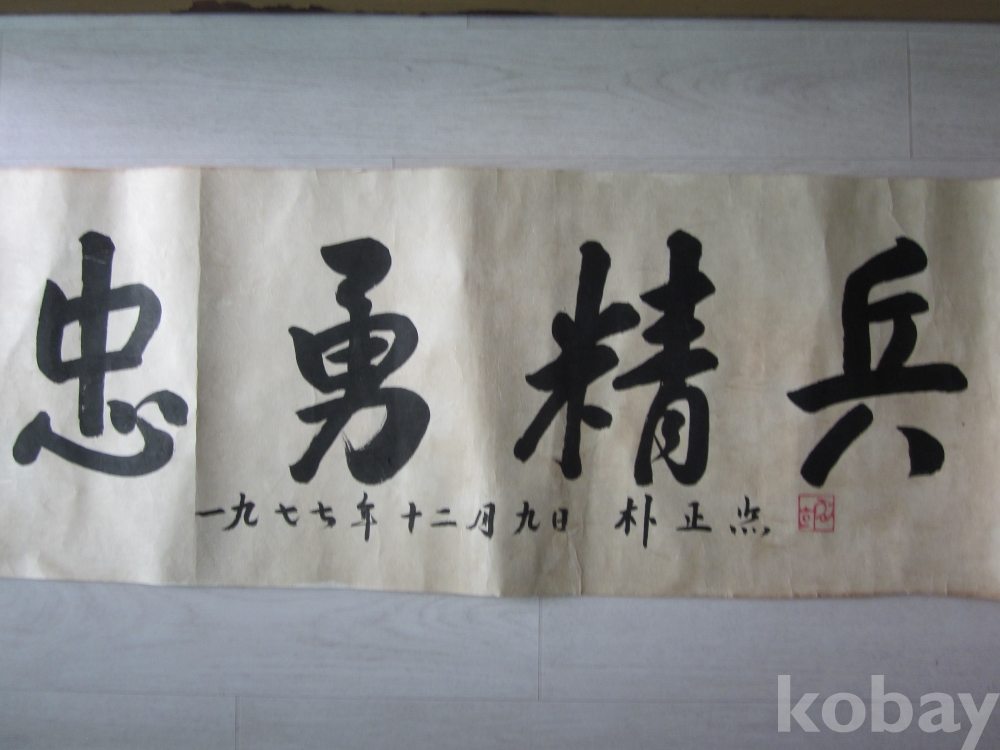 忠勇精兵
一九七七年十二月九日 朴正熙
kobay